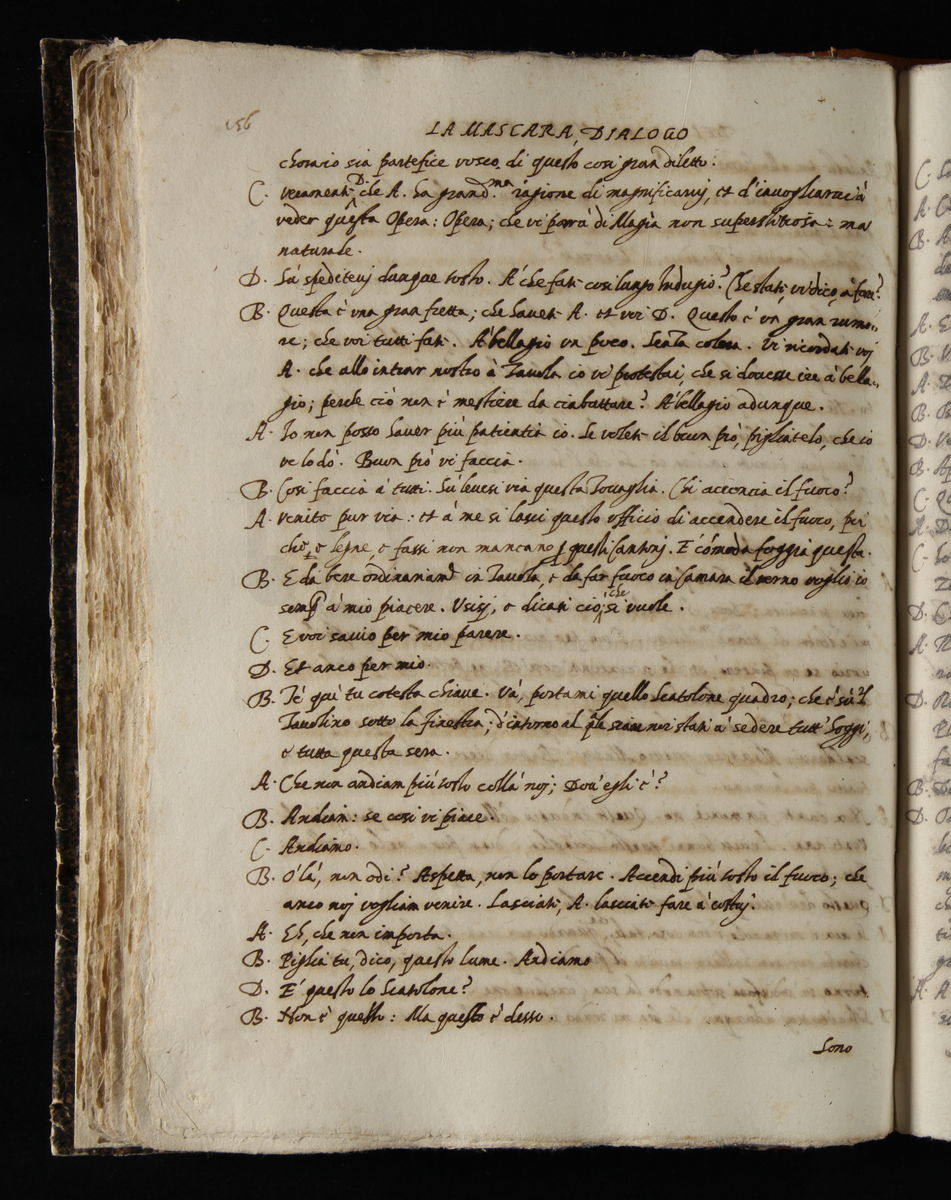 156
LA MASCARA, DIALOGO
ch'orario sia partefice vosco di questo così gran diletto.
C. veramente D. che A. ha grand.ma ragione di magnificarvj, et d'invogliarne à
veder questa Opera: Opera; che vi parrà di Magia non superstitiosa: ma
naturale.
D. Sù speditevj dunque tosto. A' che fate così lungo Indugio? Che state, vi dico, à fare?
B. Questa è una gran fretta; che havete A. et voi D. Questo è un gran rumo=
re; che voi tutti fate. A' bellagio un poco. Senza colera. Vi ricordate voj
A. che allo intrar nostro à Tavola io vi protestai, che si dovesse ire à bella=
gio; perche ciò non è mestiere da ciabattare? A' bellagio adunque.
A. Io non posso haver più patientia io. Se volete il buon prò, pigliatelo, che io
ve lo dò. Buon prò vi faccia.
B. Così faccia à tutti. Sù levesi via questa Tovaglia. Chi acconcia il fuoco?
A. venite pur via: et à me si lasci questo ufficio di accendere il fuoco, per
che, e legne, e fassi non mancano p questi Cantonj. E' cómoda foggia questa.
B. E da bere ordinariam.te in Tavola, e da far fuoco in Camara il verno voglio io
semp à mio piacere. Usisj, e dicasi ciò, che si vuole.
C. E voi savio per mio parere.
D. Et anco per mio.
B. Tè què tu cotesta chiave. Và, portami quello Scatolone quadro; che è sù 'l
Tavolino sotto la finestra; d'intorno al qle siam noi stati à sedere tutt' hoggi,
e tutta questa sera.
A. Che non andiam più tosto collà noj; Dov' egli è?
B. Andiam: se così vi piace.
C. Andiamo.
B. O' là, non odi? Aspetta, non lo portare. Accendi più tosto il fuoco; che
anco noj vogliam venire. Lasciate, A. lasciate fare à costuj.
A. Eh, che non importa.
B. Piglia tu, dico, questo lume. Andiamo
D. E' questo lo Scatolone?
B. Non è questo: Ma questo è desso.
Sono